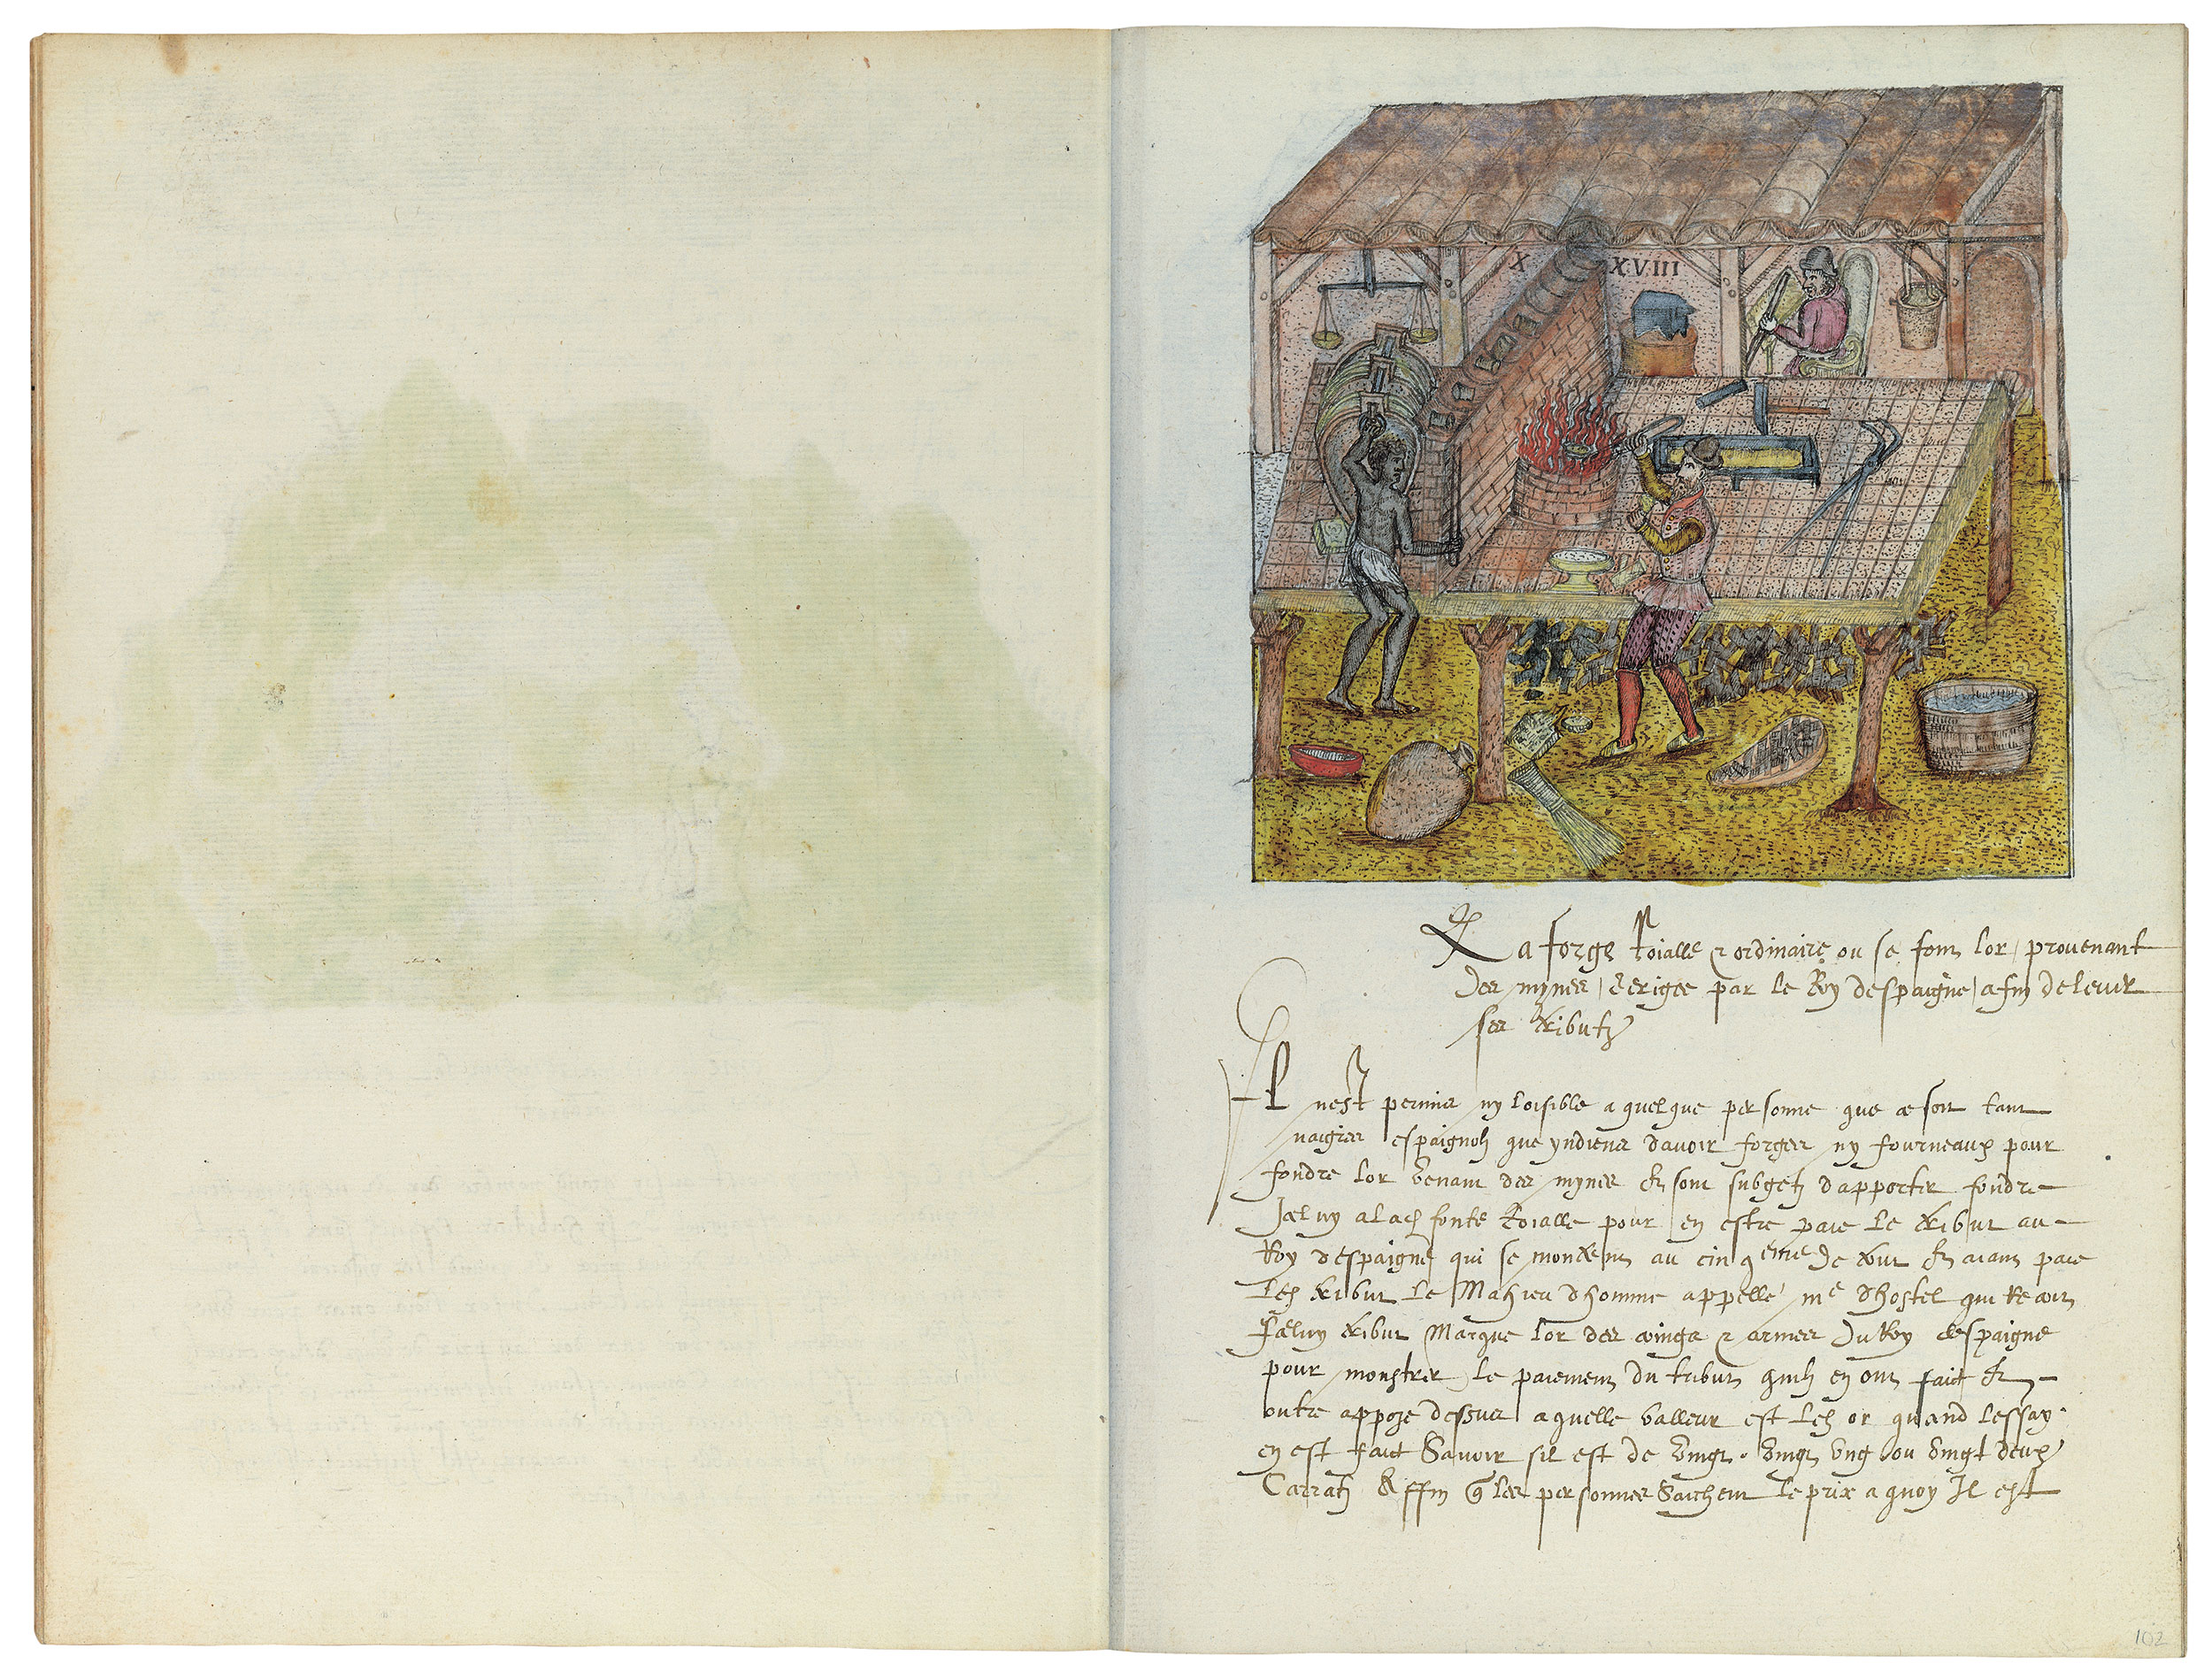 X XVIII
La forge Roialle & ordinaire ou se font lor provenant
des mynes erigee par le Roy despaigne afin de lever
ses tributz
Il nest permis ny loisible a quelque personne que ce soit tant
naigres espaignolz que yndiens davoir forges ny fourneaux pour
fondre lor venant des mynes et sont subgetz dapporter fondre
Iceluy a lad fonte Roialle pour en estre paie le tribut au
Roy despaigne qui se montent au cinqeme de tout et aiant paie
led tribut le dhomme appelle me dhostel qui recoit
Icelluy tribut Marque lor des coings & armes du Roy despaigne
pour monstrer le paiement du tribut quilz en ont faict et
outre appoze dessus a quelle valleur est led or quand lessay
en est faict Savoir sil est de vingt vingt ung ou vingt deux
Carratz Affin q les personnes Saichent le prix a quoy Il est
102